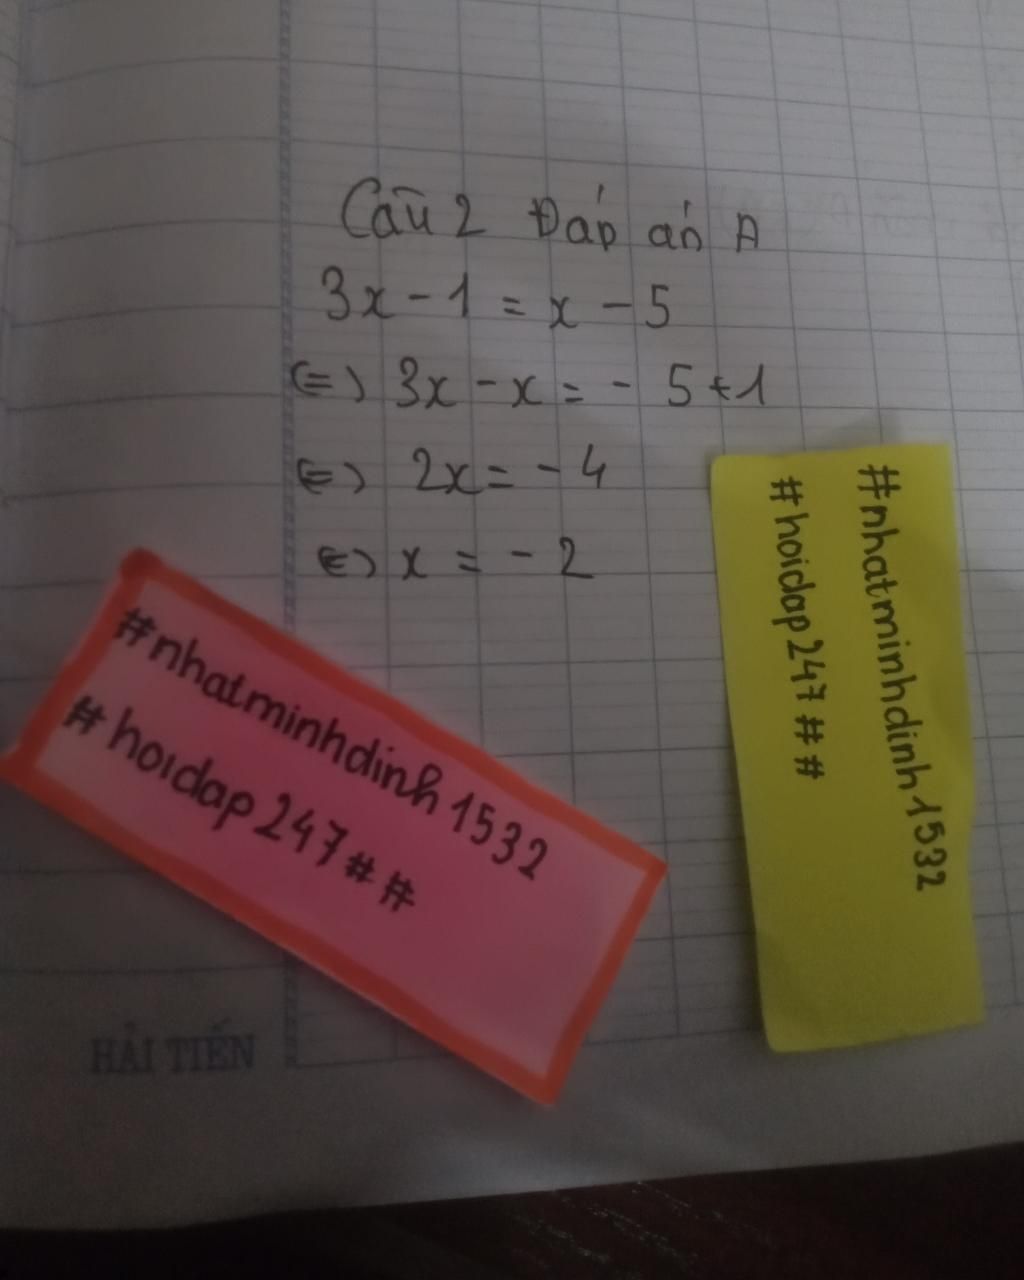 Câu 2 Đáp án A
3x - 1 = x - 5
(=) 3x - x = - 5 + 1
(=) 2x = - 4
(=) x = - 2
#nhatminhdinh1532
#hoidap247##
#nhatminhdinh1532
#hoidap247##
HẢI TIẾN